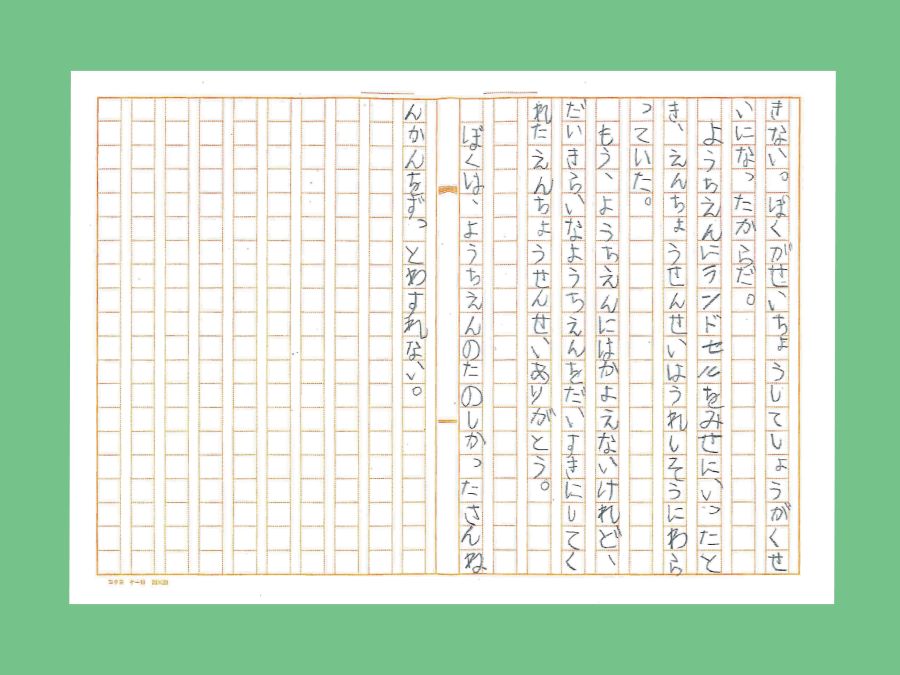 きない。ぼくがせいちょうしてしょうがくせ
いになったからだ。
ようちえんにランドセルをみせにいったと
き、えんちょうせんせいはうれしそうにわら
っていた。
もう、ようちえんにはかよえないけれど、
だいきらいなようちえんをだいすきにしてく
れたえんちょうせんせいありがとう。
ぼくは、ようちえんのたのしかったさんね
んかんをずっとわすれない。
コクヨ ケー10 20×20